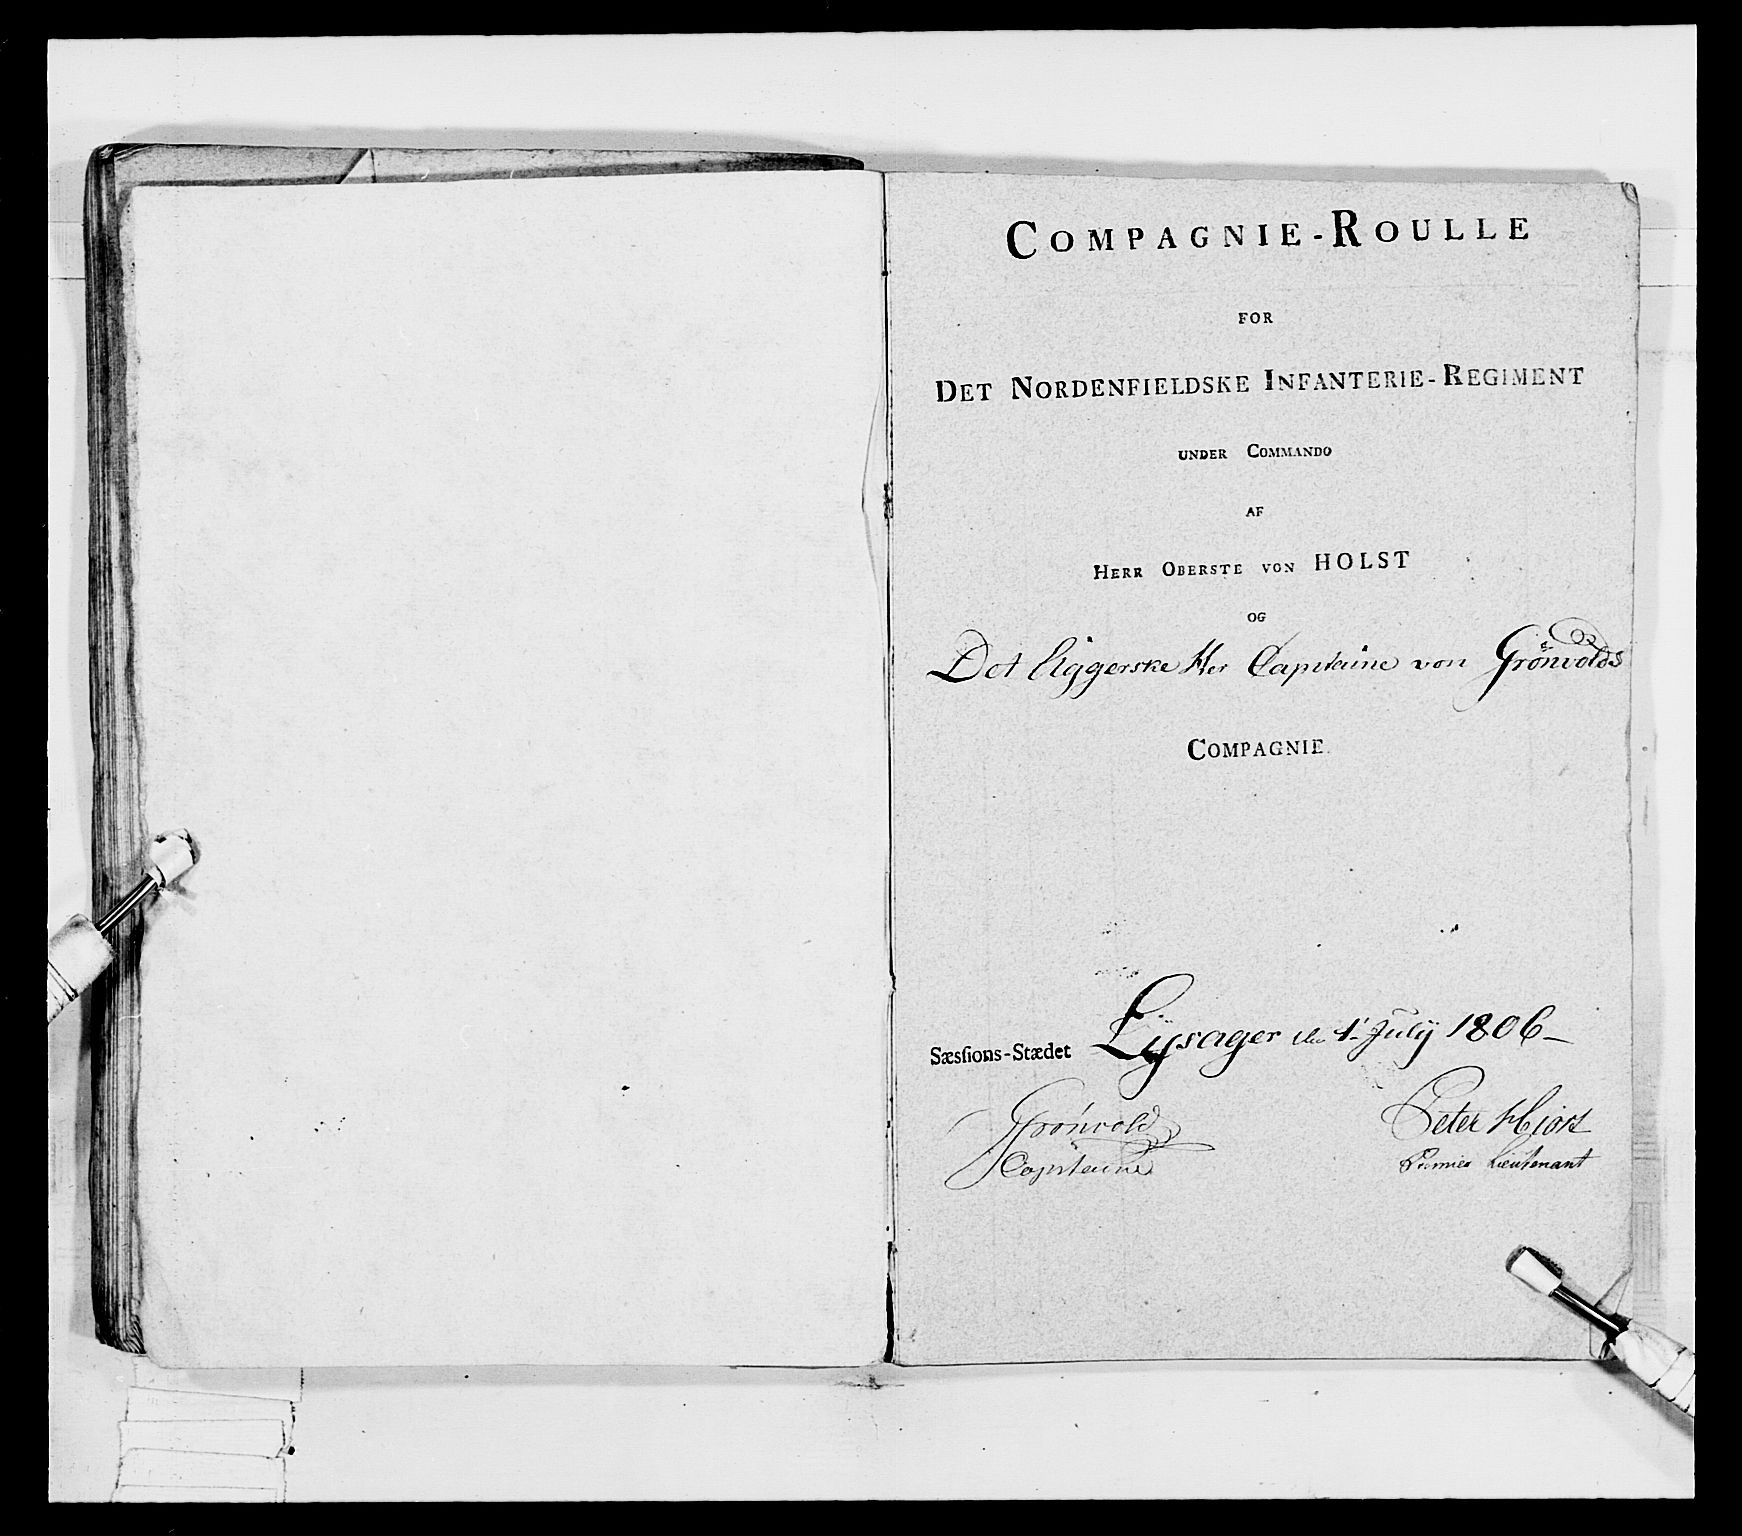 COMPAGNIE-ROULLE
FOR
DET NORDENFIELDSKE INFANTERIE-REGIMENT
UNDER COMMANDO
AF
HERR OBERSTE VON HOLST
OG
Det Aggerske Her Capitaine von Grönvolds
COMPAGNIE
Sæsſions-Stædet Lysager den 1t July 1806
Grönvold
Capitaine
Peter Hiort
Premier Lieutenant